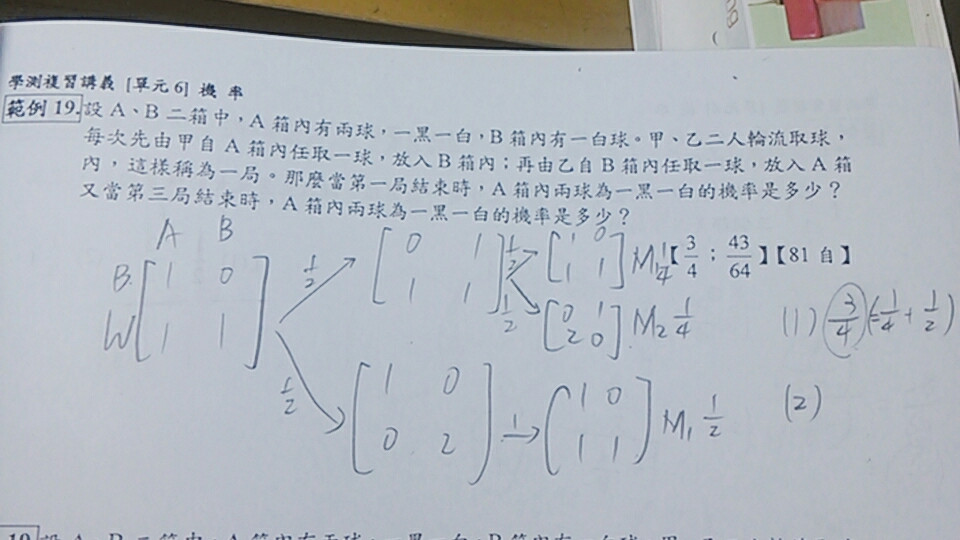 學測複習講義 [單元6] 機 率
範例 19. 設 A、B 二箱中,A 箱內有兩球,一黑一白,B 箱內有一白球。甲、乙二人輪流取球,
每次先由甲自 A 箱內任取一球,放入 B 箱內;再由乙自 B 箱內任取一球,放入 A 箱
內,這樣稱為一局。那麼當第一局結束時,A 箱內兩球為一黑一白的機率是多少?
又當第三局結束時,A 箱內兩球為一黑一白的機率是多少?
【3/4 ; 43/64】【81 自】
A B
B [1 0
W 1 1]
1/2 [0 1
1 1] 1/2 [1 0
1 1] M1 1/4
1/2 [0 1
2 0] M2 1/4
(1) 3/4 (=1/4+1/2)
1/2 [1 0
0 2] 1 [1 0
1 1] M1 1/2
(2)